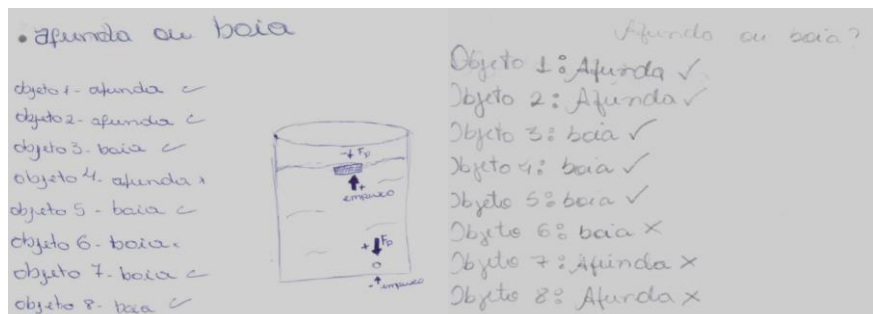 • afunda ou boia
objeto 1 - afunda ✓
objeto 2 - afunda ✓
objeto 3 - boia ✓
objeto 4 - afunda x
objeto 5 - boia ✓
objeto 6 - boia x
objeto 7 - boia ✓
objeto 8 - boia ✓
- ↓ Fp
↑ +
empuxo
+ ↓ Fp
- ↑ empuxo
Afunda ou boia?
Objeto 1: Afunda ✓
Objeto 2: Afunda ✓
Objeto 3: boia ✓
Objeto 4: boia ✓
Objeto 5: boia ✓
Objeto 6: boia ×
Objeto 7: Afunda ×
Objeto 8: Afunda ×